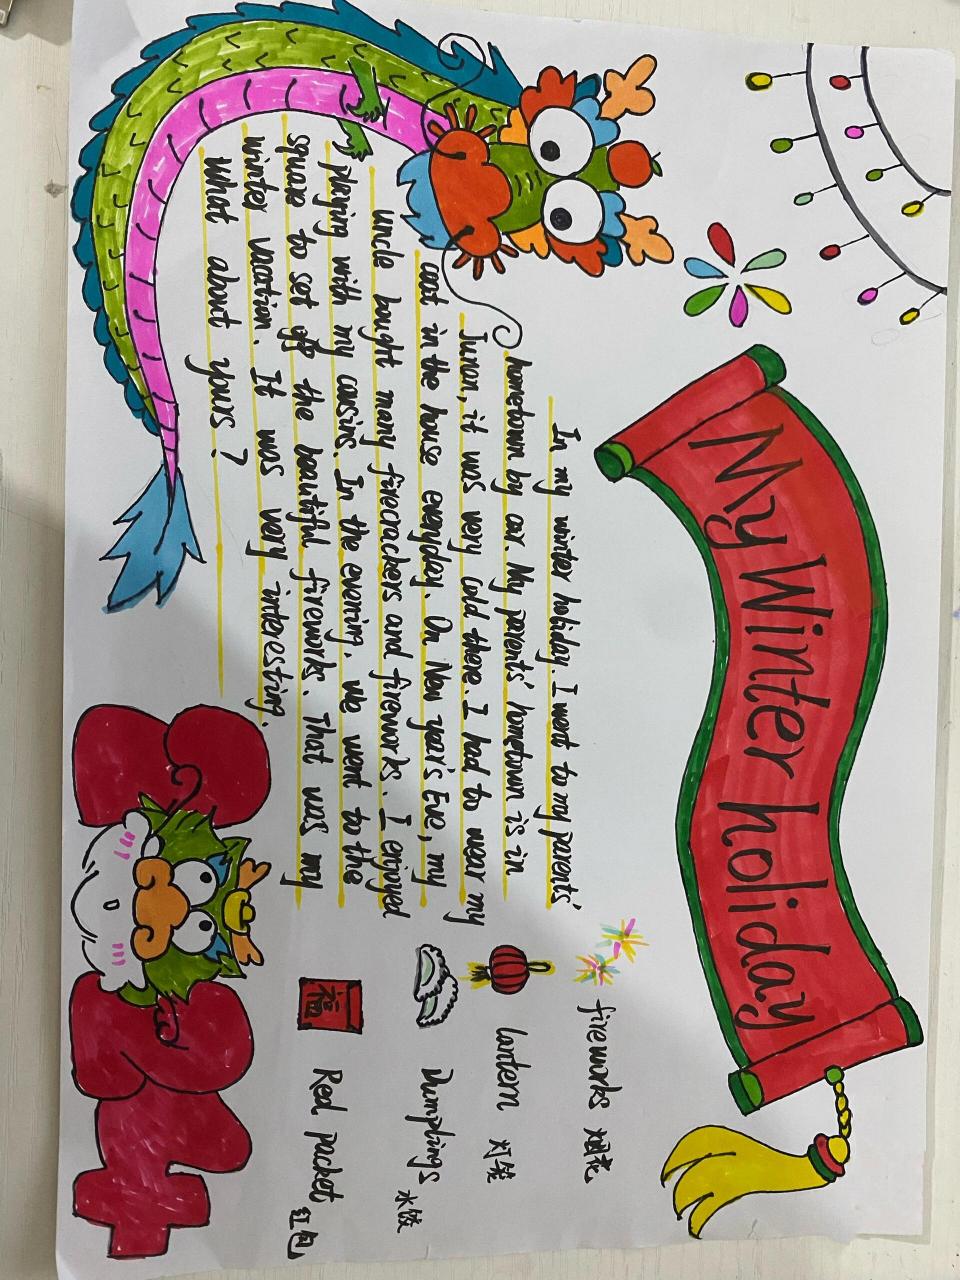 My Winter holiday
In my winter holiday. I went to my parents'
hometown by car. My parents' hometown is in
Junan, it was very cold there. I had to wear my
coat in the house everyday. On New year's Eve, my
uncle bought many firecrackers and fireworks. I enjoyed
playing with my cousins. In the evening, we went to the
square to set off the beautiful fireworks. That was my
winter vacation. It was very interesting.
What about yours?
fireworks 烟花
lantern 灯笼
Dumplings 水饺
福
Red packet 红包
2024